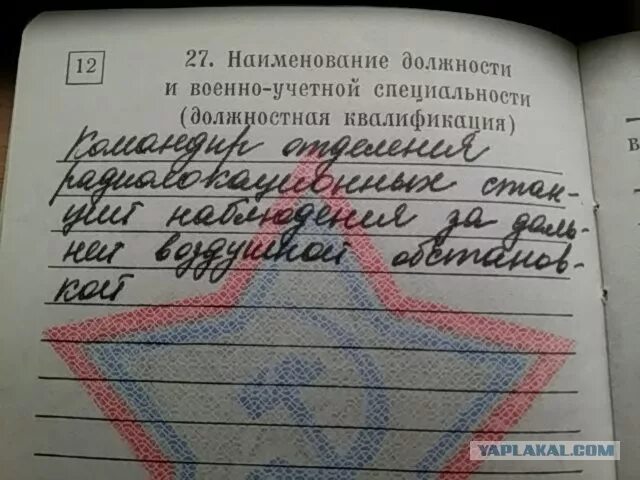 12
27. Наименование должности
и военно-учетной специальности
(должностная квалификация)
Командир отделения
радиолокационных стан-
ций наблюдения за даль-
ней воздушной обстанов-
кой
в
YAPLAKAL.COM